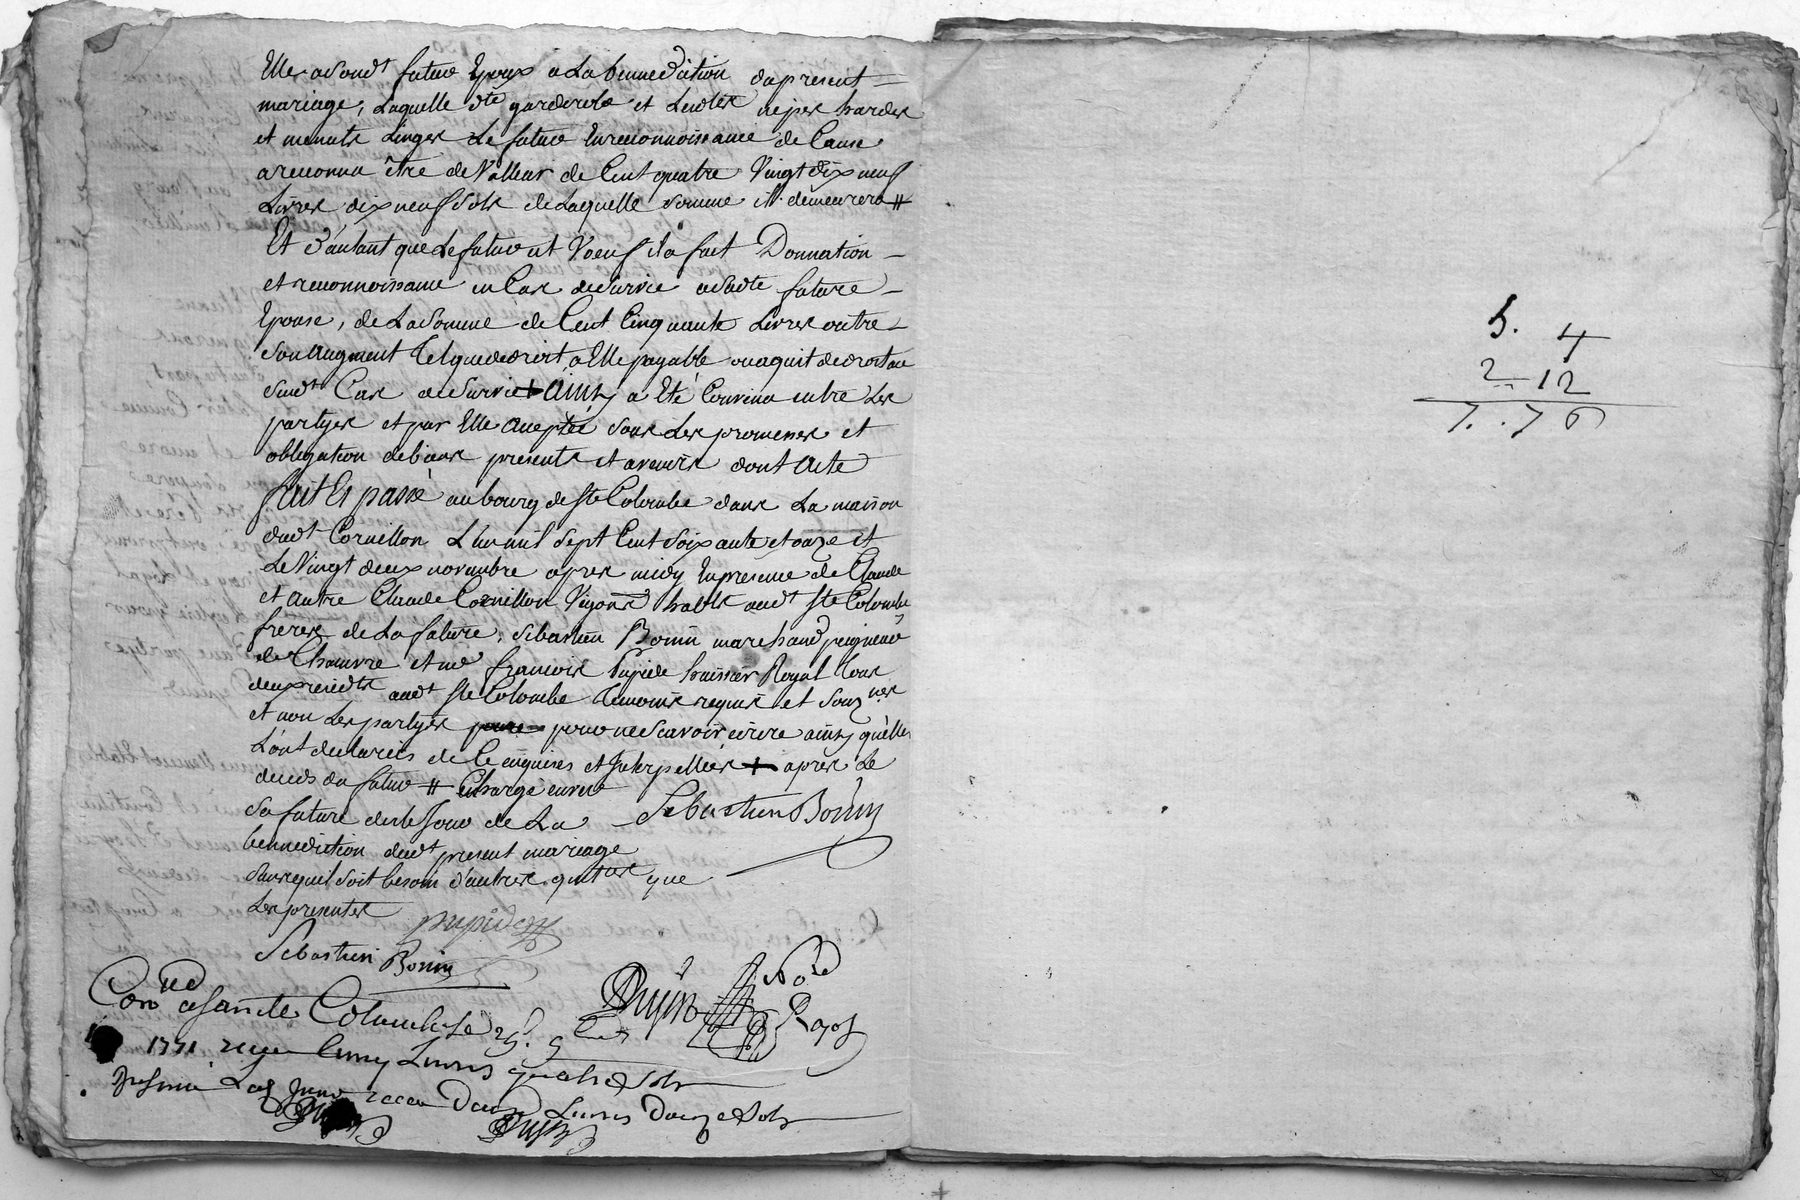 Elle audt futur Epoux a La bennediction du present
mariage, Laquelle dte garderobe et Lesdtes nipes hardes
et menuts Linges Le futur En reconnoissance de Cause
a reconnu être de Valleur de Cent quatre Vingt dix neuf
Livres dix neuf sols de Laquelle somme il demeurera #
Et d'autant que Le futur est Voeuf il a fait Donnation
et reconnoissance en Cas de survie a sadte future
Epouse, de La somme de Cent Cinquante Livres outre
son augment Tel que de droit a Elle payable ou a qui de droit au
sudt Cas de survie + ainsy a Eté Convenu entre Les
partyes et par Elle acceptée sous Les promesses et
obligation de biens presents et avenirs dont acte
fait Et passé au bourg de Ste Colombe dans La maison
dudt Cornillon L'an mil sept Cent soixante et onze et
Le Vingt deux novembre apres midy En presence de Claude
et autre Claude Cornillon Vigons habts audt Ste Colombe
freres de La future, Sebastien Bonin marchand peigneur
de Chanvre et me francois Pupide huissier Royal Tous
deux residts audt Ste Colombe Temoins requis et souznes
et non Les partyes pour ne scavoir ecrire ainsy qu'elles
L'ont declarées de Ce enquises et Interpellées + apres Le
deces du futur # Chargé envers
sa future des le Jour de La Sebastien Bonin
bennediction dudt present mariage
sans quil soit besoin d'autres quittces que
Les presentes
pupide
Sebastien Bonin
No.re
Royal
Conlle a Sainte Colombe Le
1771 recu Cinq Livres quatre Sols
Insinué Led Jour recu Deux Livres Douze Sols
5. 4
2 - 12
7. . 7 6